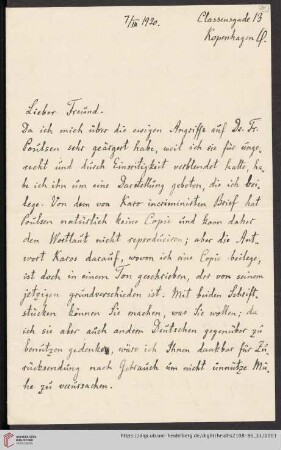 7/III 1920.
Classensgade 13
Kopenhagen Ø.
Lieber Freund.
Da ich mich über die ewigen Angriffe auf Dr. Fr.
Poulsen sehr geärgert habe, weil ich sie für unge-
recht und durch Einseitigkeit verblendet halte, ha-
be ich ihn um eine Darstellung gebeten, die ich bei-
lege. Von dem von Karo incriminierten Brief hat
Poulsen natürlich keine Copie und kann daher
den Wortlaut nicht reproduciren; aber die Ant-
wort Karos darauf, wovon ich eine Copie beilege,
ist doch in einem Ton geschrieben, der von seinem
jetzigen grundverschieden ist. Mit beiden Schrift-
stücken können Sie machen, was Sie wollen; da
ich sie aber auch andern Deutschen gegenüber zu
benützen gedenke, wäre ich Ihnen dankbar für Zu-
rücksendung nach Gebrauch um nicht unnütze Mü-
he zu verursachen.